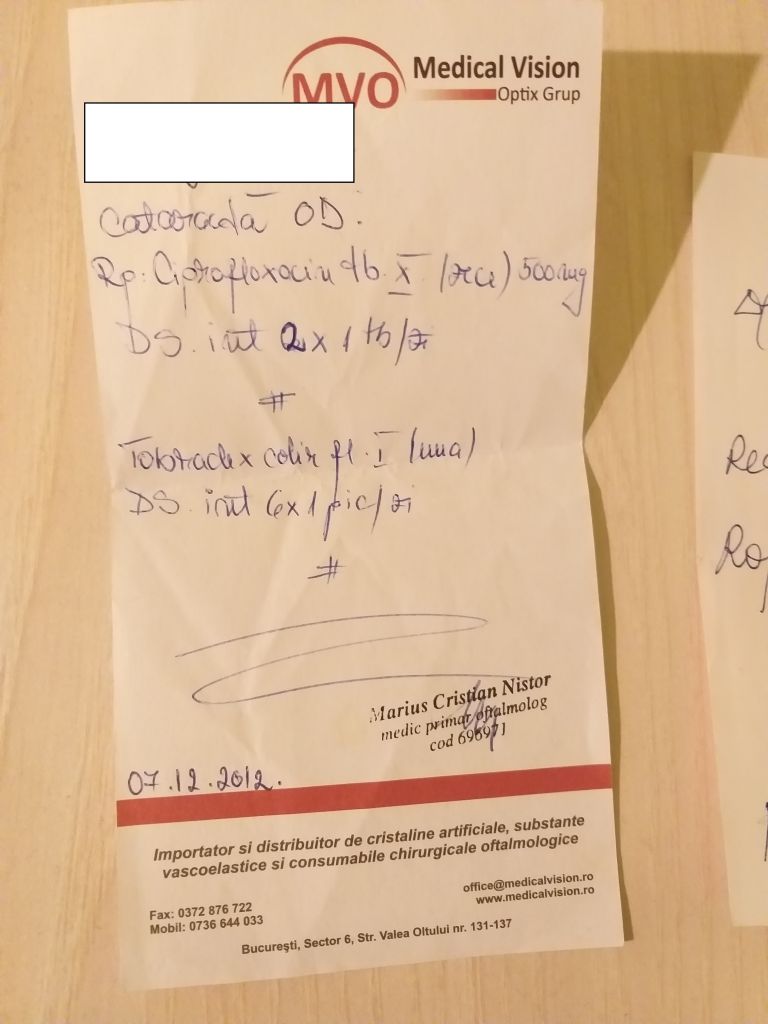 MVO Medical Vision
Optix Grup
Cataractă OD.
Rp: Ciprofloxacin tb. X (zece) 500mg
DS. int 2x1 tb/zi
#
Tobradex colir fl. I (una)
DS. int 6x1 pic/zi
#
Marius Cristian Nistor
medic primar oftalmolog
cod 696971
07.12.2012.
Importator si distribuitor de cristaline artificiale, substante
vascoelastice si consumabile chirurgicale oftalmologice
Fax: 0372 876 722
Mobil: 0736 644 033
office@medicalvision.ro
www.medicalvision.ro
Bucureşti, Sector 6, Str. Valea Oltului nr. 131-137